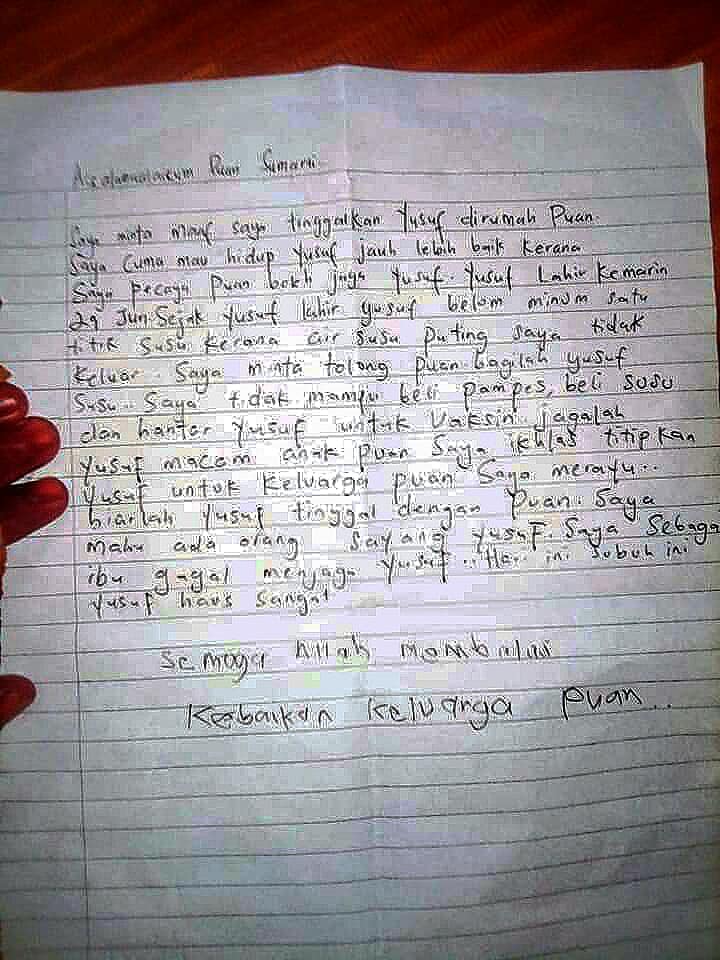 Assalamualaikum Puan Sumarni
Saya minta maaf saya tinggalkan Yusuf dirumah Puan.
Saya cuma mau hidup Yusuf jauh lebih baik kerana
Saya pecaya Puan boleh jaga Yusuf. Yusuf Lahir Kemarin
29 Jun. Sejak Yusuf lahir Yusuf belom minum satu
titik susu kerana air susu puting saya tidak
keluar. Saya minta tolong puan bagilah yusuf
susu. Saya tidak mampu beli pampes, beli susu
dan hantar Yusuf untuk Vaksin. jagalah
Yusuf macam anak puan. Saya ikhlas titipkan
Yusuf untuk Keluarga puan. Saya merayu..
biarlah Yusuf tinggal dengan Puan. Saya
mahu ada orang sayang Yusuf. Saya Sebaga
ibu gagal menjaga Yusuf.. Hari ini subuh ini
Yusuf haus sangat
Semoga Allah membalas
Kebaikan Keluarga Puan..